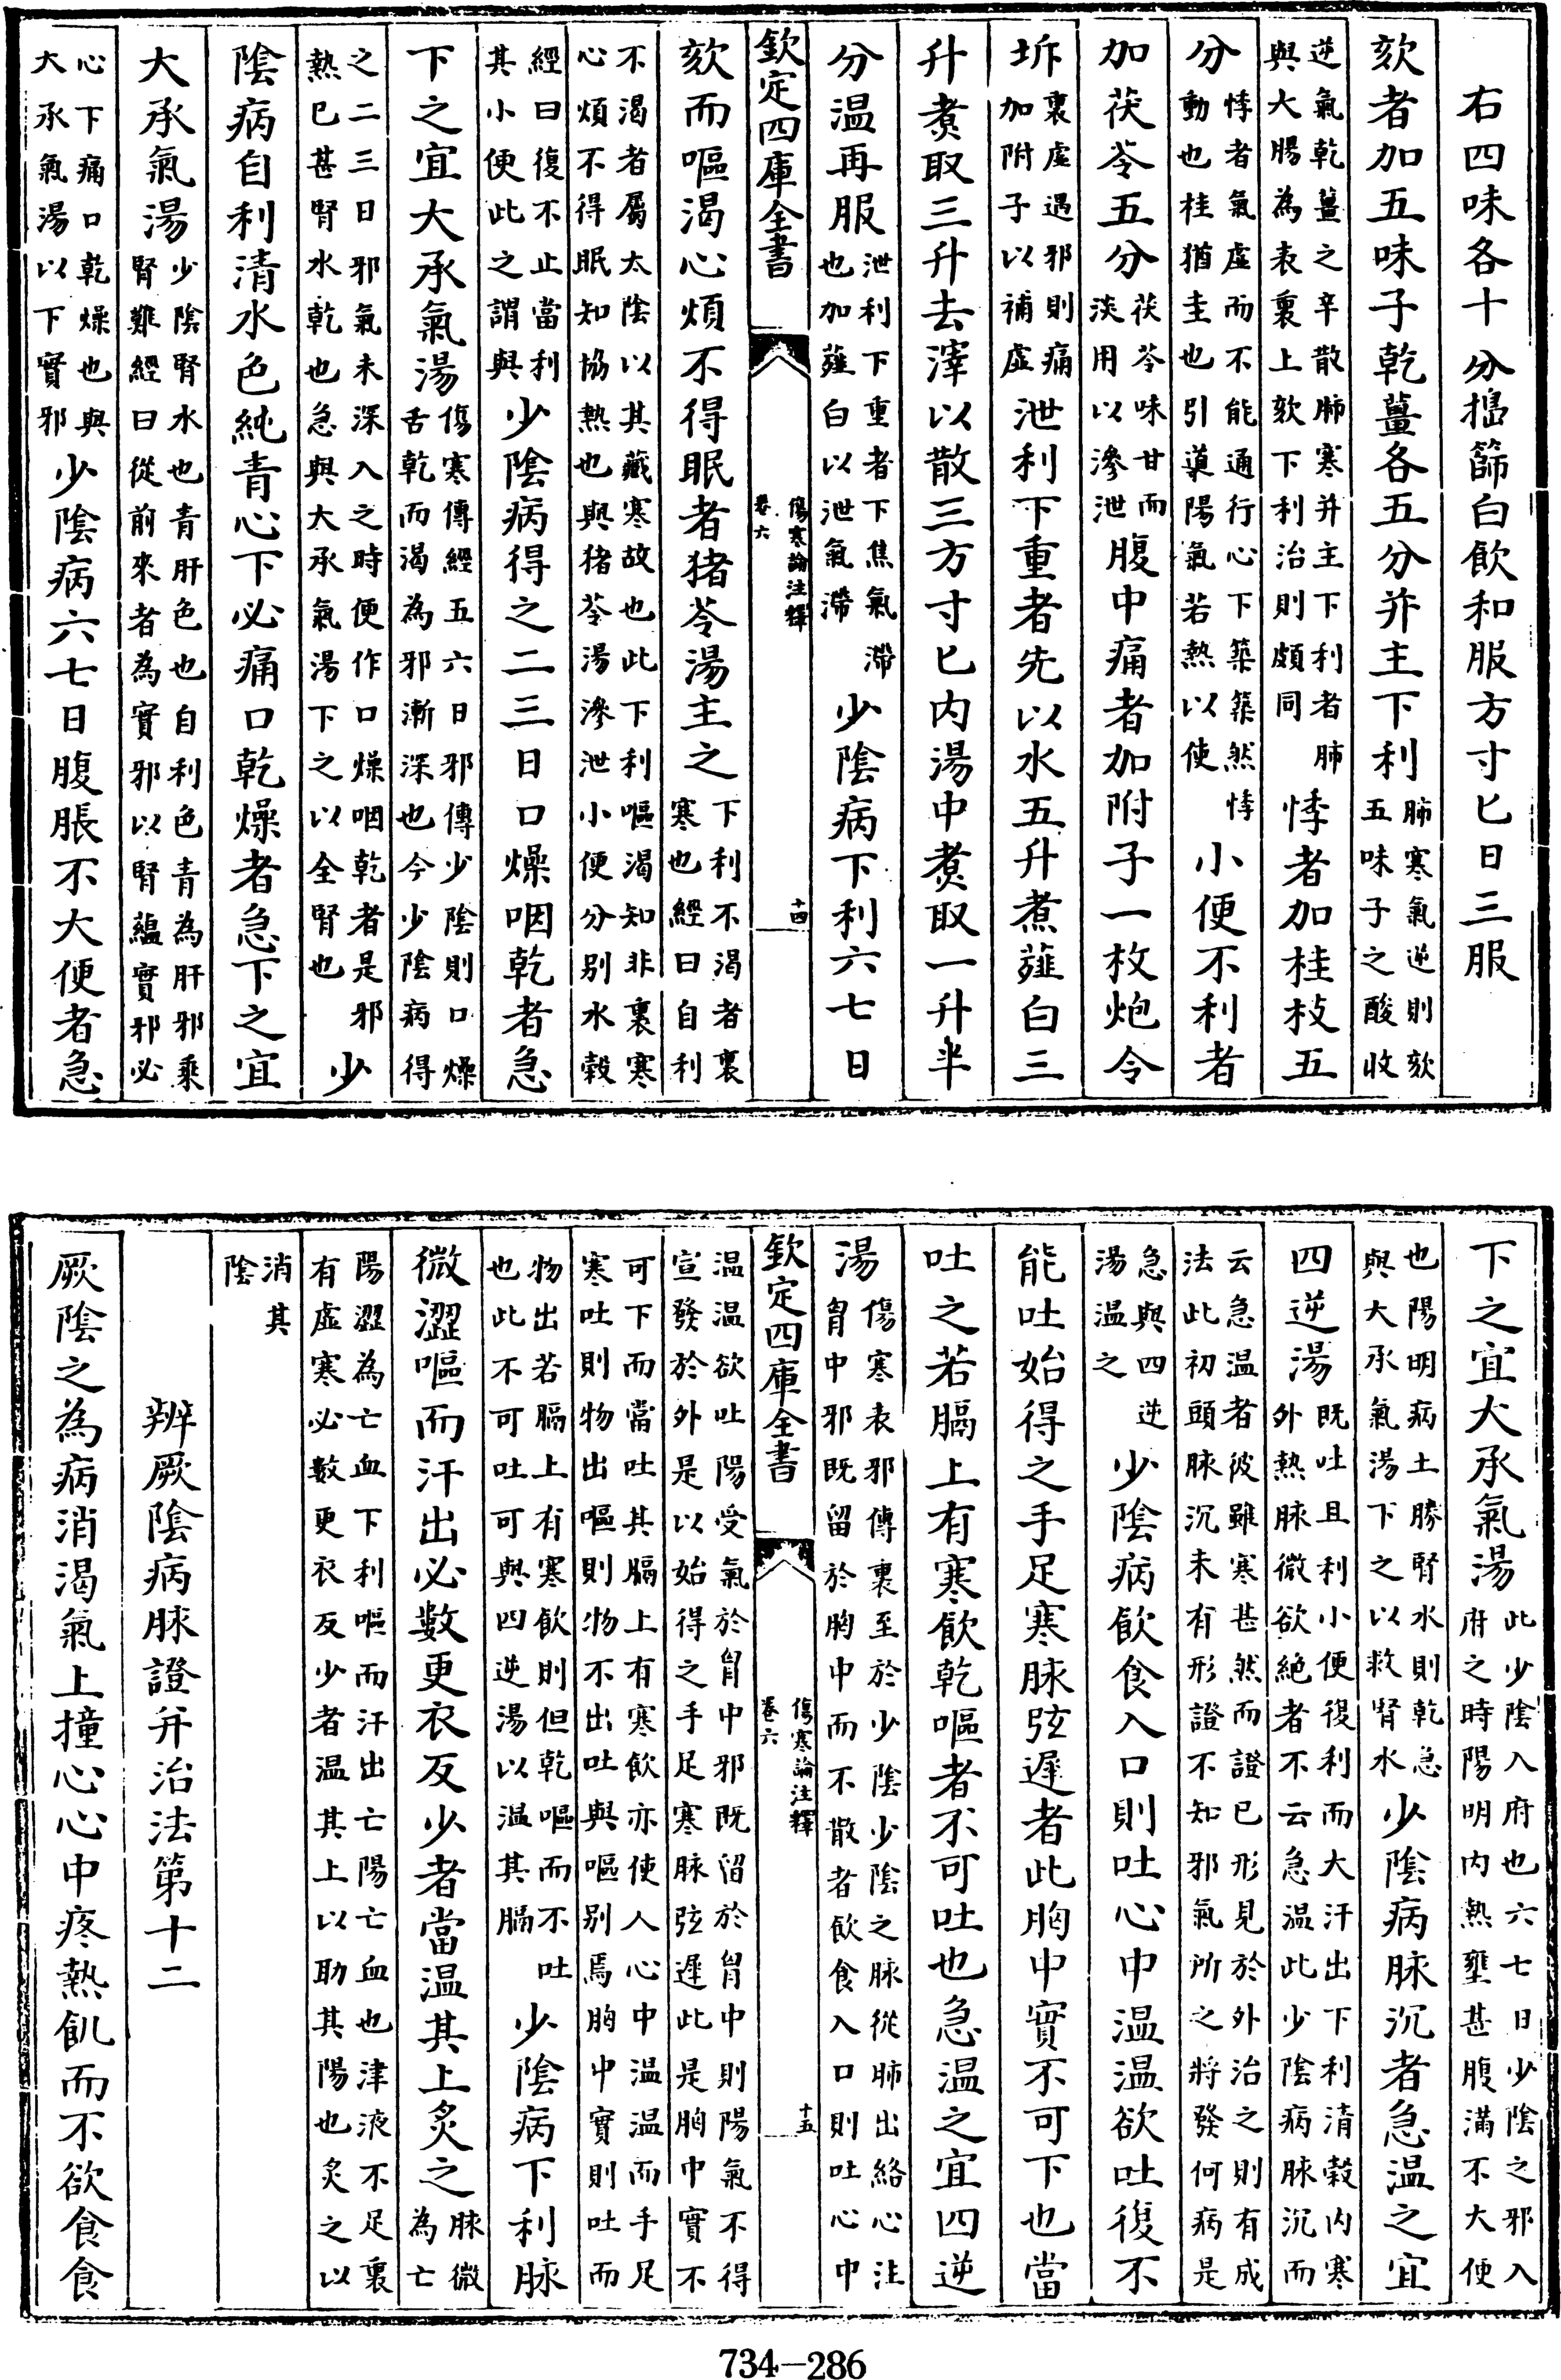 右四味各十分搗篩白飲和服方寸匕日三服
欬者加五味子乾薑各五分并主下利肺寒氣逆則欬五味子之酸收
逆氣乾薑之辛散肺寒并主下利者肺與大腸為表裏上欬下利治則頗同悸者加桂枝五
分悸者氣虛而不能通行心下築築然悸動也桂猶圭也引導陽氣若熱以使小便不利者
加茯苓五分茯苓味甘而淡用以滲泄腹中痛者加附子一枚炮令
坼裏虛遇邪則痛加附子以補虛泄利下重者先以水五升煮薤白三
升煮取三升去滓以散三方寸匕内湯中煮取一升半
分温再服泄利下重者下焦氣滯也加薤白以泄氣滯少陰病下利六七日
欽定四庫全書 傷寒論注釋 卷六 十四
欬而嘔渴心煩不得眠者猪苓湯主之下利不渴者裏寒也經曰自利
不渴者屬太陰以其藏寒故也此下利嘔渴知非裏寒心煩不得眠知協熱也與猪苓湯滲泄小便分别水穀
經曰復不止當利其小便此之謂與少陰病得之二三日口燥咽乾者急
下之宜大承氣湯傷寒傳經五六日邪傳少陰則口燥舌乾而渴為邪漸深也今少陰病得
之二三日邪氣未深入之時便作口燥咽乾者是邪熱已甚腎水乾也急與大承氣湯下之以全腎也少
陰病自利清水色純青心下必痛口乾燥者急下之宜
大承氣湯少陰腎水也青肝色也自利色青為肝邪乘腎難經曰從前來者為實邪以腎蘊實邪必
心下痛口乾燥也與大承氣湯以下實邪少陰病六七日腹脹不大便者急
下之宜大承氣湯此少陰入府也六七日少陰之邪入府之時陽明内熱壅甚腹滿不大便
也陽明病土勝腎水則乾急與大承氣湯下之以救腎水少陰病脉沉者急温之宜
四逆湯既吐且利小便復利而大汗出下利清穀内寒外熱脉微欲絶者不云急温此少陰病脉沉而
云急温者彼雖寒甚然而證已形見於外治之則有成法此初頭脉沉未有形證不知邪氣所之將發何病是
急與四逆湯温之少陰病飲食入口則吐心中温温欲吐復不
能吐始得之手足寒脉弦遲者此胸中實不可下也當
吐之若膈上有寒飲乾嘔者不可吐也急温之宜四逆
湯傷寒表邪傳裏至於少陰少陰之脉從肺出絡心注胷中邪既留於胸中而不散者飲食入口則吐心中
欽定四庫全書 傷寒論注釋 卷六 十五
温温欲吐陽受氣於胷中邪既留於胷中則陽氣不得宣發於外是以始得之手足寒脉弦遲此是胸中實不
可下而當吐其膈上有寒飲亦使人心中温温而手足寒吐則物出嘔則物不出吐與嘔别焉胸中實則吐而
物出若膈上有寒飲則但乾嘔而不吐也此不可吐可與四逆湯以温其膈少陰病下利脉
微澀嘔而汗出必數更衣反少者當温其上炙之脉微為亡
陽澀為亡血下利嘔而汗出亡陽亡血也津液不足裏有虛寒必數更衣反少者温其上以助其陽也炙之以
消其陰
辨厥陰病脉證并治法第十二
厥陰之為病消渴氣上撞心心中疼熱飢而不欲食食
734-286